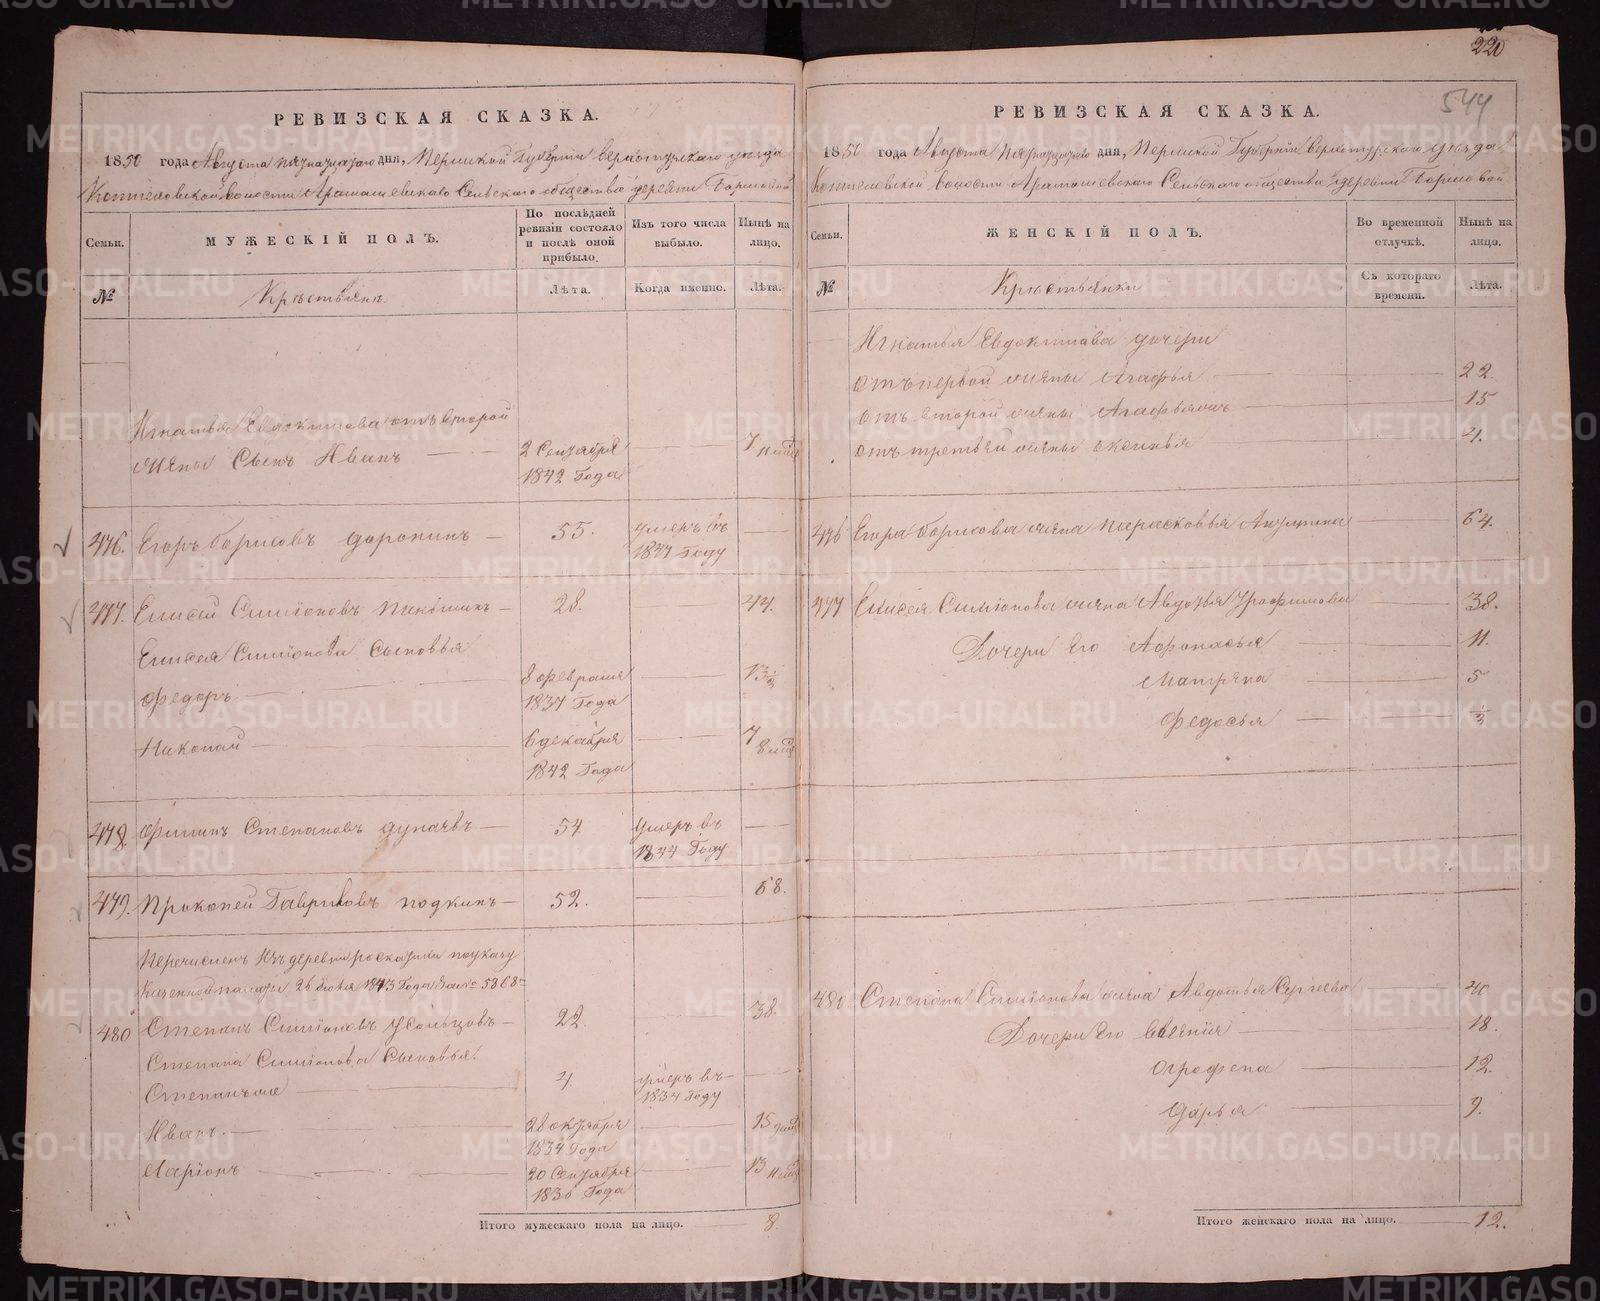 220
544
РЕВИЗСКАЯ СКАЗКА.
1850 года Августа пятнадцатого дня, Пермской Губернии Верхотурского уезда
волости Арамашевского Сельского общества деревни
Семьи.
МУЖЕСКІЙ ПОЛЪ.
По послѣдней ревизіи состояло и послѣ оной прибыло.
Изъ того числа выбыло.
Нынѣ на лицо.
№
Крестьянъ
Лѣта.
Когда именно.
Лѣта.
Игнатья Евдокимова отъ второй
жены Сынъ Иванъ
2 Сентября
1842 Года
7
476. Егоръ Борисовъ Доронинъ — 55. умеръ въ
1847 Году
477. Елисей Симионовъ — 28. 44.
Елисея Симионова Сыновья
Федоръ 8 февраля 13 1/2
1837 Года
Николай 6 декабря 7
1842 Года
478. Филипъ Степановъ Дунаевъ — 54 умеръ въ
1844 Году
479. Прокопей Гавриловъ — 52. 68.
Перечисленъ Изъ деревни по указу
Казенной палаты 26 1843 Года За № 5868
480 Степанъ Симионовъ Усольцовъ — 22. 38.
Степана Симионова Сыновья.
Степанъ 4. умеръ въ
1834 Году
Иванъ. 28 октября 15
1834 Года
Ларионъ 20 Сентября 13
1836 Года
Итого мужескаго пола на лицо. 8.
РЕВИЗСКАЯ СКАЗКА.
1850 года Августа пятнадцатого дня, Пермской Губерніи Верхотурского Уезда
волости Арамашевского Сельского общества деревни
Семьи.
ЖЕНСКІЙ ПОЛЪ.
Во временной отлучкѣ.
Нынѣ на лицо.
№
Крестьянки
Съ котораго времени.
Лѣта.
Игнатья Евдокимова дочери
отъ первой жены Агафья 22.
отъ второй жены Агафья 15
от третьей жены Аксинья 4.
476 Егора Борисова жена Парасковья Акулина 64.
477 Елисея Симионова жена Авдотья Трофимова 38.
Дочери Его Афонасья 11.
Матрена 5
Федосья 1/2
480 Степана Симионова жена Авдотья Сергеева 40
Дочери Его 18.
Огрофена 12.
Дарья 9.
Итого женскаго пола на лицо. 12.
METRIKI.GASO-URAL.RU